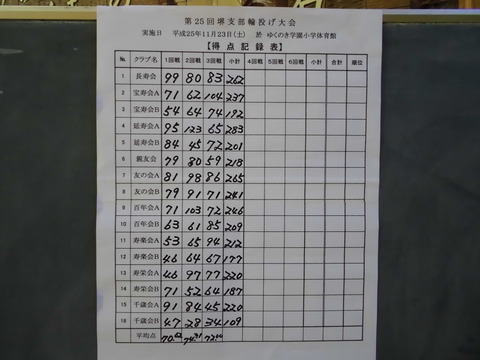 第25回堺支部輪投げ大会
実施日 平成25年11月23日(土) 於 ゆくのき学園小学体育館
【得点記録表】
№ クラブ名 1回戦 2回戦 3回戦 小計 4回戦 5回戦 6回戦 小計 合計 順位
1 長寿会 99 80 83 262
2 宝寿会A 71 62 104 237
3 宝寿会B 54 64 74 192
4 延寿会A 95 123 65 283
5 延寿会B 84 45 72 201
6 親友会 79 80 59 218
7 友の会A 81 98 86 265
8 友の会B 79 91 71 241
9 百年会A 71 103 72 246
10 百年会B 63 61 85 209
11 寿楽会A 53 65 94 212
12 寿楽会B 46 64 67 177
13 寿栄会A 46 97 77 220
14 寿栄会B 71 52 64 187
15 千歳会A 91 84 45 220
16 千歳会B 47 28 34 109
平均点